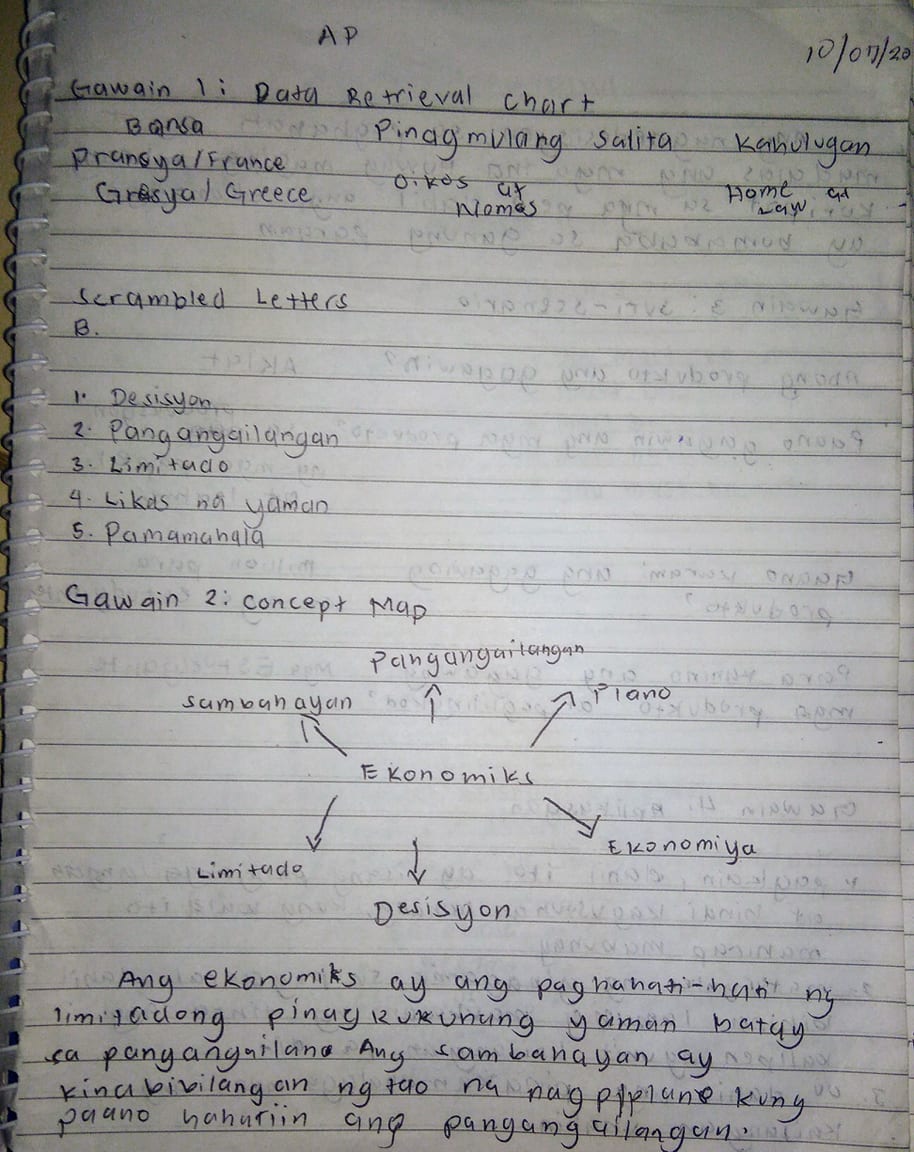 AP
10/07/20
Gawain 1: Data Retrieval Chart
Bansa Pinagmulang Salita Kahulugan
Pransya/France
Gresya/Greece Oikos at Home at
Nomos Law
Scrambled Letters
B.
1. Desisyon
2. Pangangailangan
3. Limitado
4. Likas na yaman
5. Pamamahala
Gawain 2: Concept Map
Pangangailangan
Sambahayan Plano
Ekonomiks
Limitado Ekonomiya
Desisyon
Ang ekonomiks ay ang paghahati-hati ng
limitadong pinagkukunang yaman batay
sa pangangailana Ang sambahayan ay
kinabibilangan ng tao na nag plano kung
paano hahatiin ang pangangailangan.